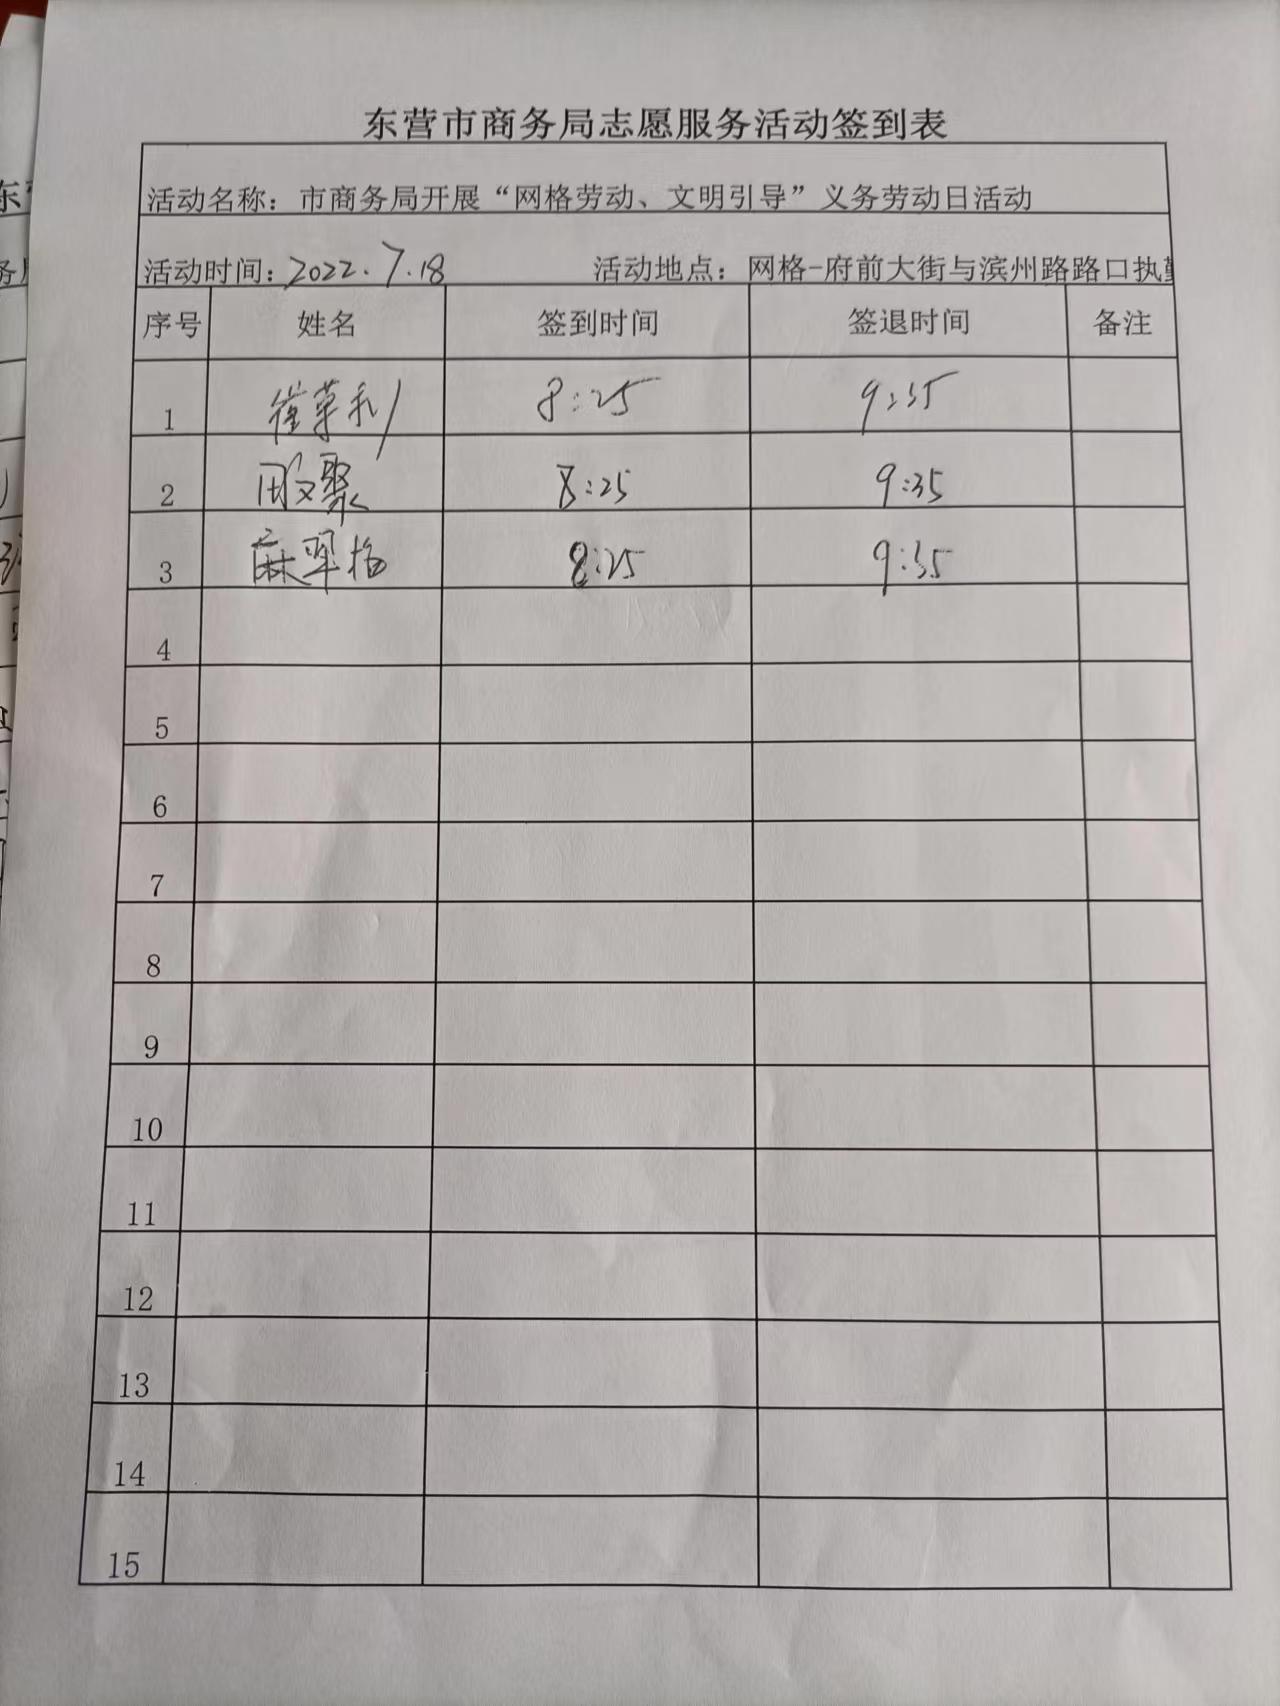 东营市商务局志愿服务活动签到表
活动名称：市商务局开展“网格劳动、文明引导”义务劳动日活动
活动时间：2022.7.18 活动地点：网格-府前大街与滨州路路口执勤
序号 姓名 签到时间 签退时间 备注
1 8:25 9:35
2 聚 8:25 9:35
3 麻翠梅 8:25 9:35
4
5
6
7
8
9
10
11
12
13
14
15